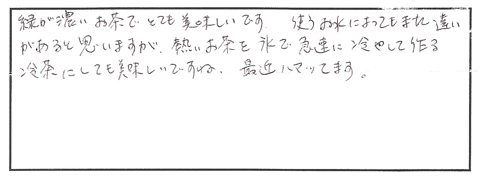 緑が濃いお茶でとても美味しいです。使うお水によってもまた違い
があると思いますが、熱いお茶を氷で急速に冷やして作る
冷茶にしても美味しいですね。最近ハマッてます。